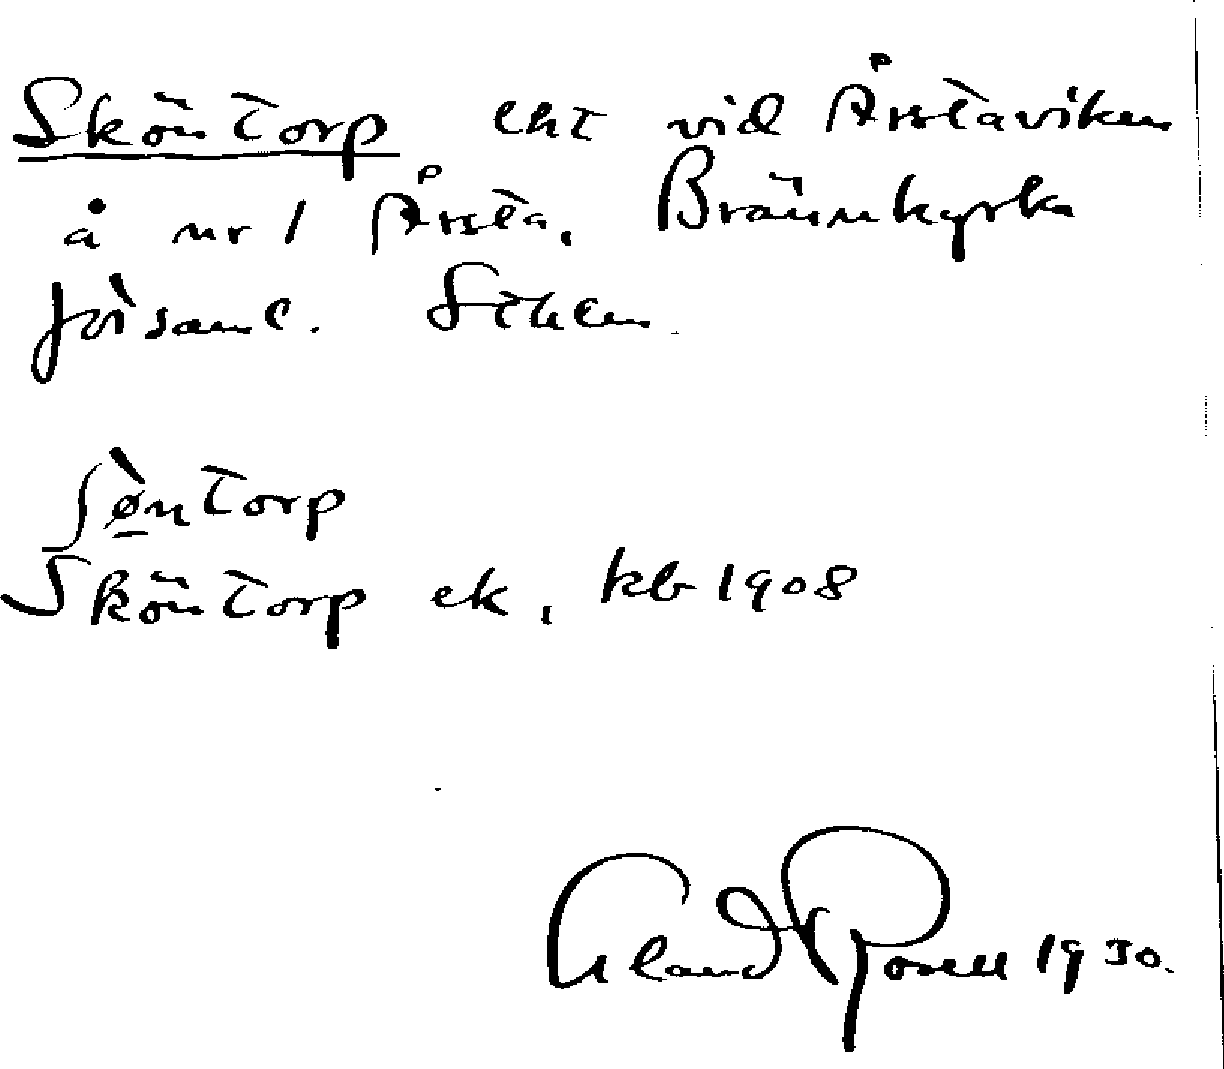 Sköntorp lht vid Årstaviken
å nr 1 Årsta, Brännkyrka
församl. Sthlm.
ʃø̀ntorp
Sköntorp ek, kb 1908
Erland Rosell 1930.